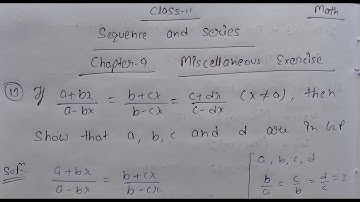 Class-11 Math
Sequence and series
Chapter-9 Miscellaneous Exercise
(17) If (a+bx)/(a-bx) = (b+cx)/(b-cx) = (c+dx)/(c-dx) (x≠0), then
Show that a, b, c and d are in G.P
Sol: (a+bx)/(a-bx) = (b+cx)/(b-cx) [a, b, c, d
b/a = c/b = d/c = r